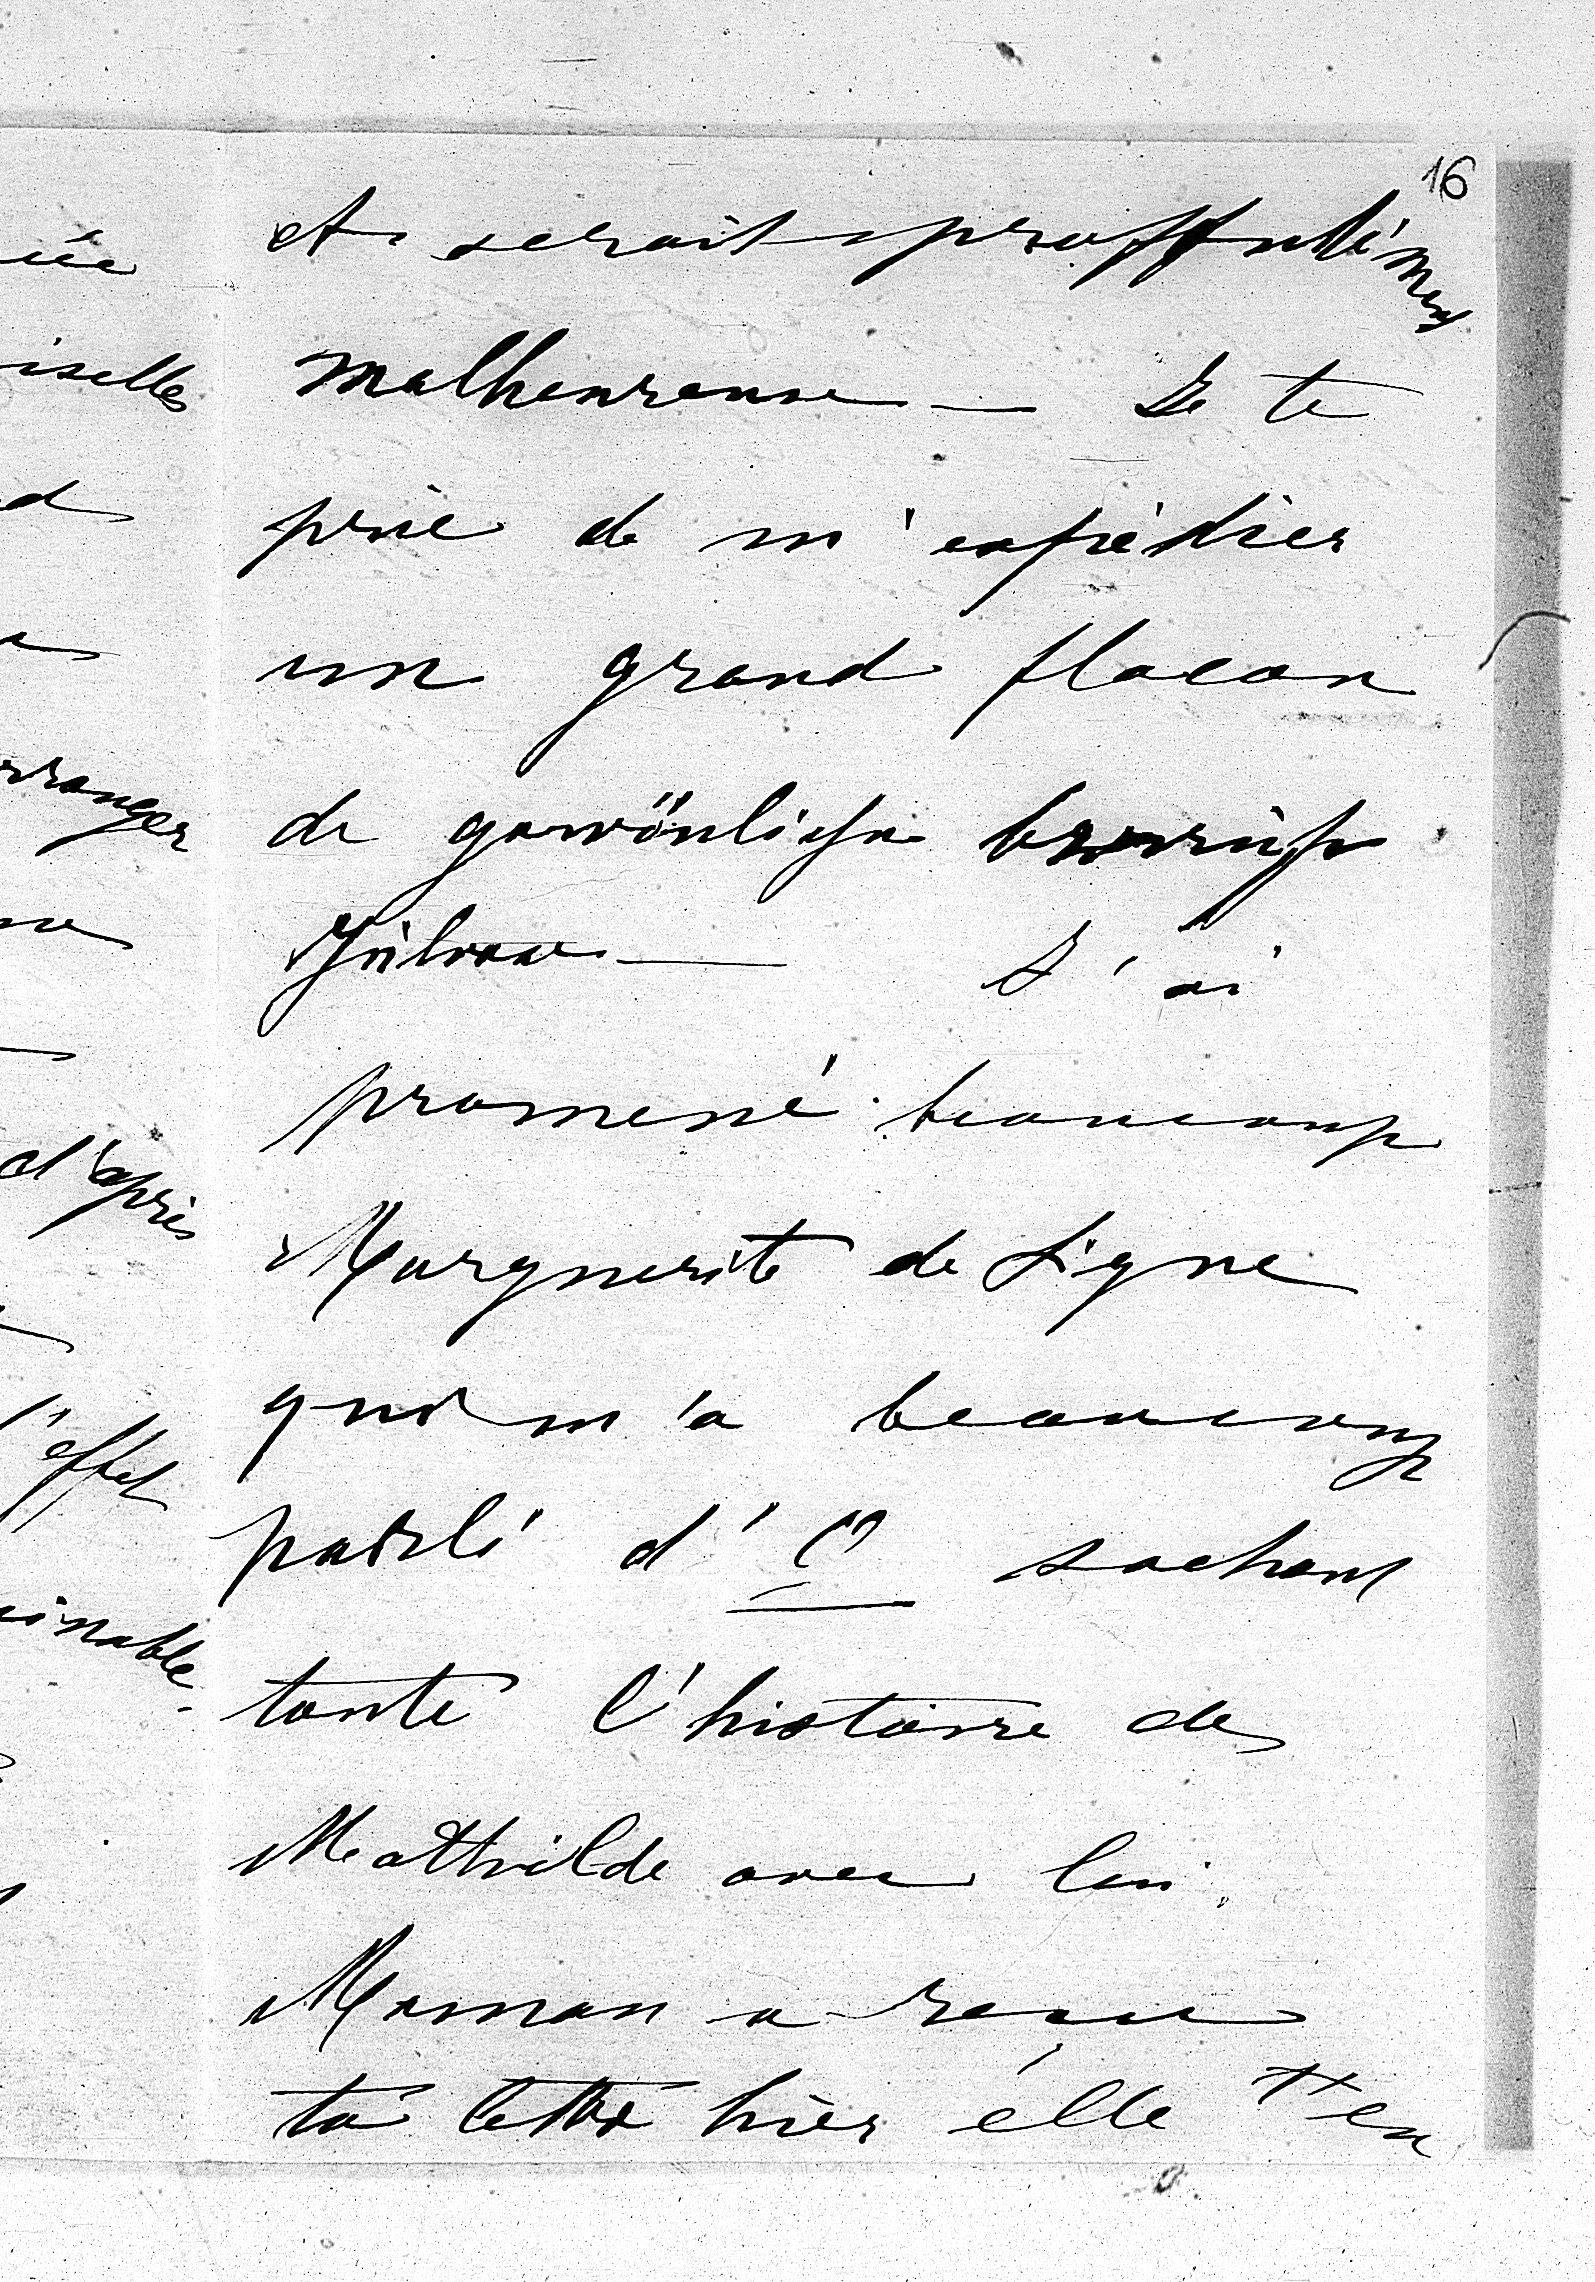 16
et serait proffondément
malheureuse — Je te
prie de m'expédier
un grand flacon
de gewönliche
J'ai
promené beaucoup
Marguerite de Ligne
qui m'a beaucoup
parlé d' sachant
toute l'histoire de
Mathilde avec lui.
Maman a reçu
ta lettre hier élle t'en
iselles
rranger
d'après
l'effet